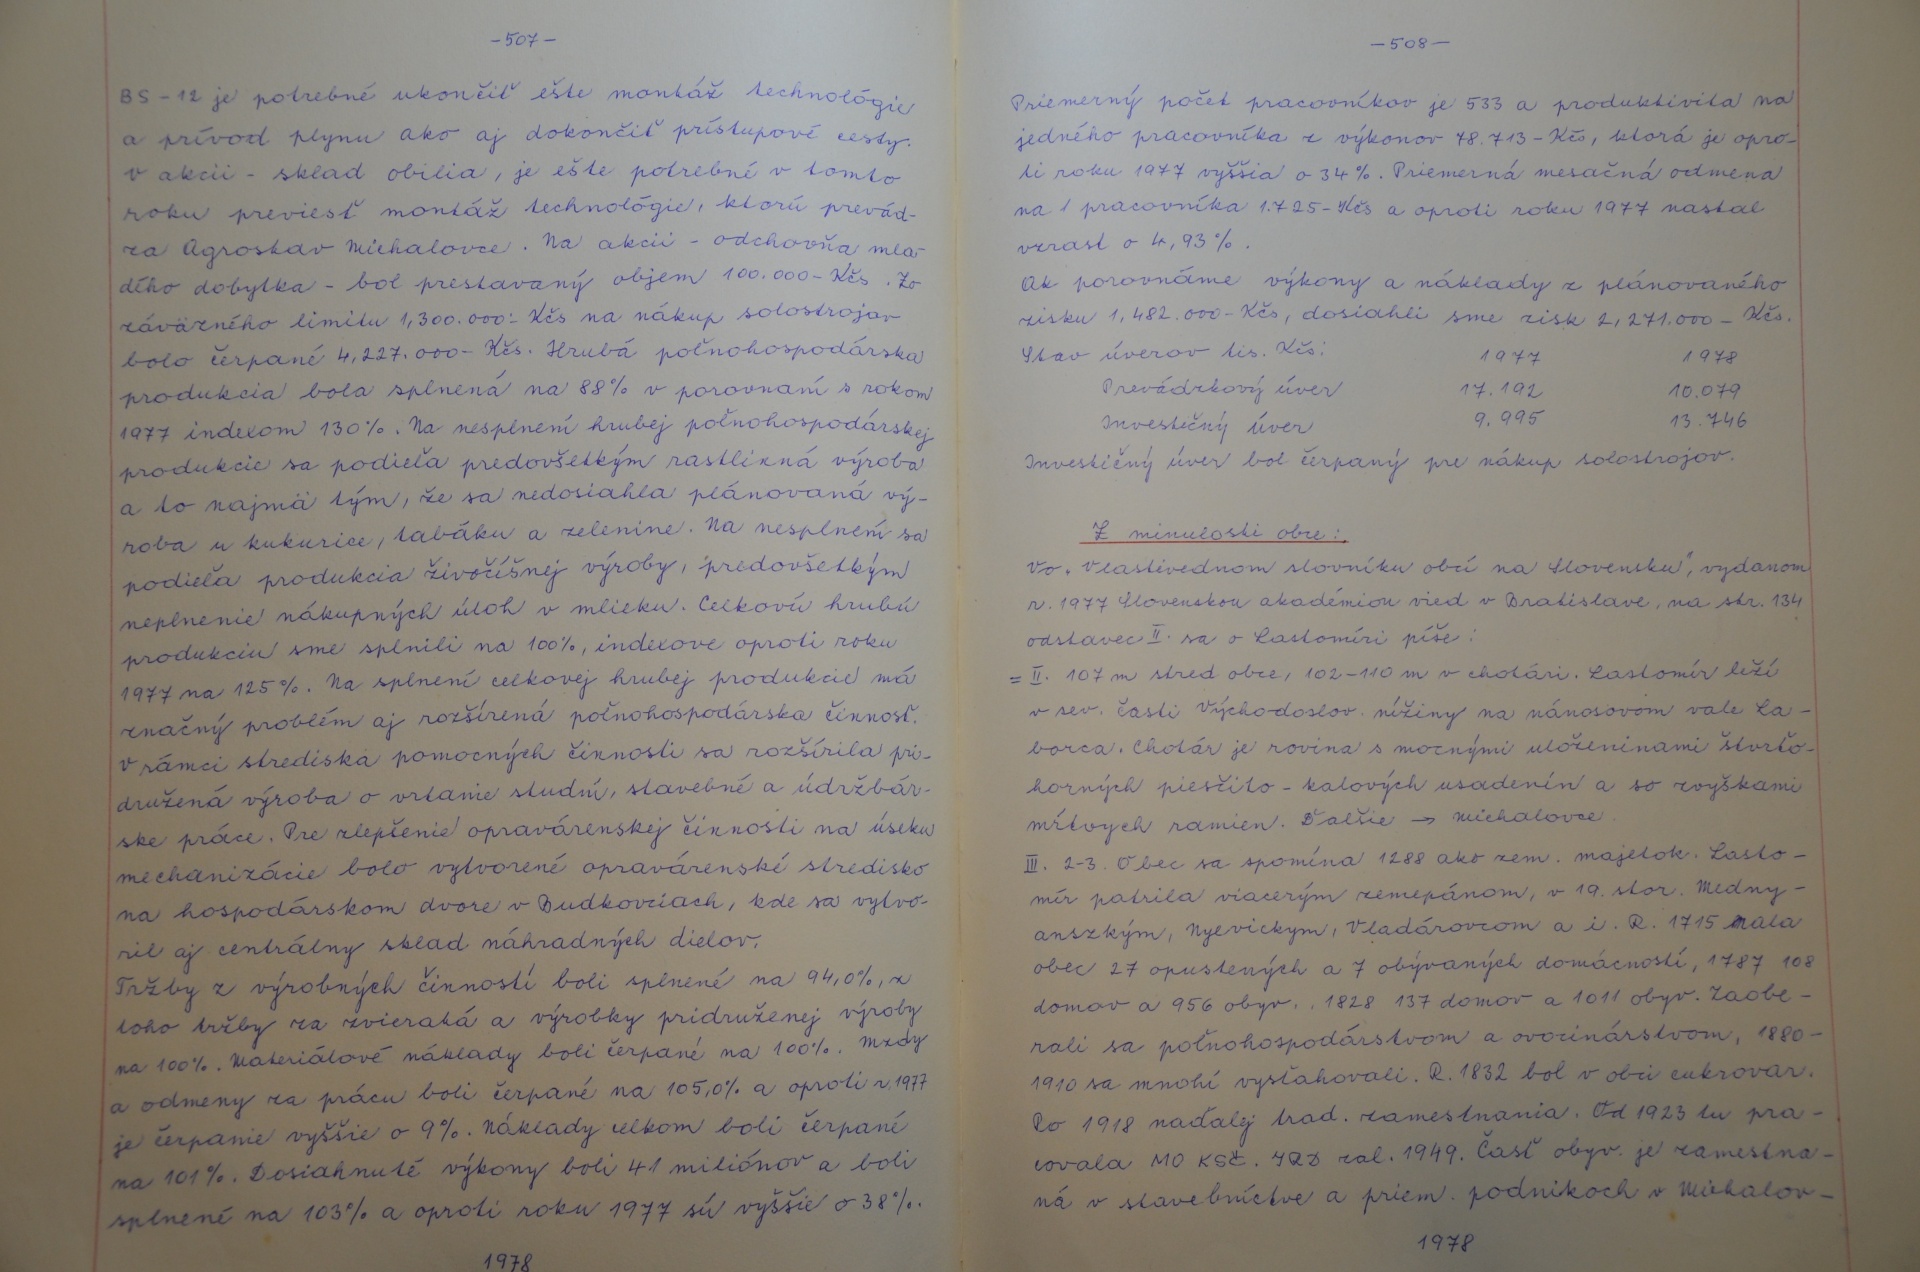 -507-
BS-12 je potrebné ukončiť ešte montáž technológie
a prívod plynu ako aj dokončiť prístupové cesty.
V akcii - sklad obilia, je ešte potrebné v tomto
roku previesť montáž technológie, ktorú prevád-
za Agrostav Michalovce. Na akcii - odchovňa mla-
dého dobytka - bol prestavaný objem 100.000- Kčs. Zo
záväzného limitu 1,300.000.- Kčs na nákup solostrojov
bolo čerpané 4,227.000- Kčs. Hrubá poľnohospodárska
produkcia bola splnená na 88% v porovnaní s rokom
1977 indexom 130%. Na nesplnení hrubej poľnohospodárskej
produkcie sa podieľa predovšetkým rastlinná výroba
a to najmä tým, že sa nedosiahla plánovaná vý-
roba u kukurice, tabáku a zelenine. Na nesplnení sa
podieľa produkcia živočíšnej výroby, predovšetkým
neplnenie nákupných úloh v mlieku. Celkovú hrubú
produkciu sme splnili na 100%, indexove oproti roku
1977 na 125%. Na splnení celkovej hrubej produkcie má
značný problém aj rozšírená poľnohospodárska činnosť.
V rámci strediska pomocných činností sa rozšírila pri-
družená výroba o vrtanie studní, stavebné a údržbár-
ske práce. Pre zlepšenie opravárenskej činnosti na úseku
mechanizácie bolo vytvorené opravárenské stredisko
na hospodárskom dvore v Budkovciach, kde sa vytvo-
ril aj centrálny sklad náhradných dielov.
Tržby z výrobných činností boli splnené na 94,0%, z
toho tržby za zvieratá a výrobky pridruženej výroby
na 100%. Materiálové náklady boli čerpané na 100%. Mzdy
a odmeny za prácu boli čerpané na 105,0% a oproti r. 1977
je čerpanie vyššie o 9%. Náklady celkom boli čerpané
na 101%. Dosiahnuté výkony boli 41 miliónov a boli
splnené na 103% a oproti roku 1977 sú vyššie o 38%.
1978
-508-
Priemerný počet pracovníkov je 533 a produktivita na
jedného pracovníka z výkonov 78.713- Kčs, ktorá je opro-
ti roku 1977 vyššia o 34%. Priemerná mesačná odmena
na 1 pracovníka 1.725- Kčs a oproti roku 1977 nastal
vzrast o 4,93%.
Ak porovnáme výkony a náklady z plánovaného
zisku 1,482.000- Kčs, dosiahli sme zisk 2,271.000- Kčs.
Stav úverov tis. Kčs: 1977 1978
Prevádzkový úver 17.192 10.079
Investičný úver 9.995 13.746
Investičný úver bol čerpaný pre nákup solostrojov.
Z minulosti obce:
Vo „Vlastivednom slovníku obcí na Slovensku", vydanom
r. 1977 Slovenskou akadémiou vied v Bratislave, na str. 134
odstavec II. sa o Lastomíri píše:
= II. 107 m stred obce, 102-110 m v chotári. Lastomír leží
v sev. časti Východoslov. nížiny na nánosovom vale La-
borca. Chotár je rovina s mocnými uloženinami štvrťo-
horných piesčito-kalových usadenín a so zvyškami
mŕtvych ramien. Ďalšie → Michalovce.
III. 2-3. Obec sa spomína 1288 ako zem. majetok. Lasto-
mír patrila viacerým zemepánom, v 19. stor. Medny-
anszkým, Nyevickym, Vladárovcom a i. R. 1715 mala
obec 27 opustených a 7 obývaných domácností, 1787 108
domov a 956 obyv., 1828 137 domov a 1011 obyv. Zaobe-
rali sa poľnohospodárstvom a ovocinárstvom, 1880-
1910 sa mnohí vysťahovali. R. 1832 bol v obci cukrovar.
Po 1918 naďalej trad. zamestnania. Od 1923 tu pra-
covala MO KSČ. JRD zal. 1949. Časť obyv. je zamestna-
ná v stavebníctve a priem. podnikoch v Michalov-
1978